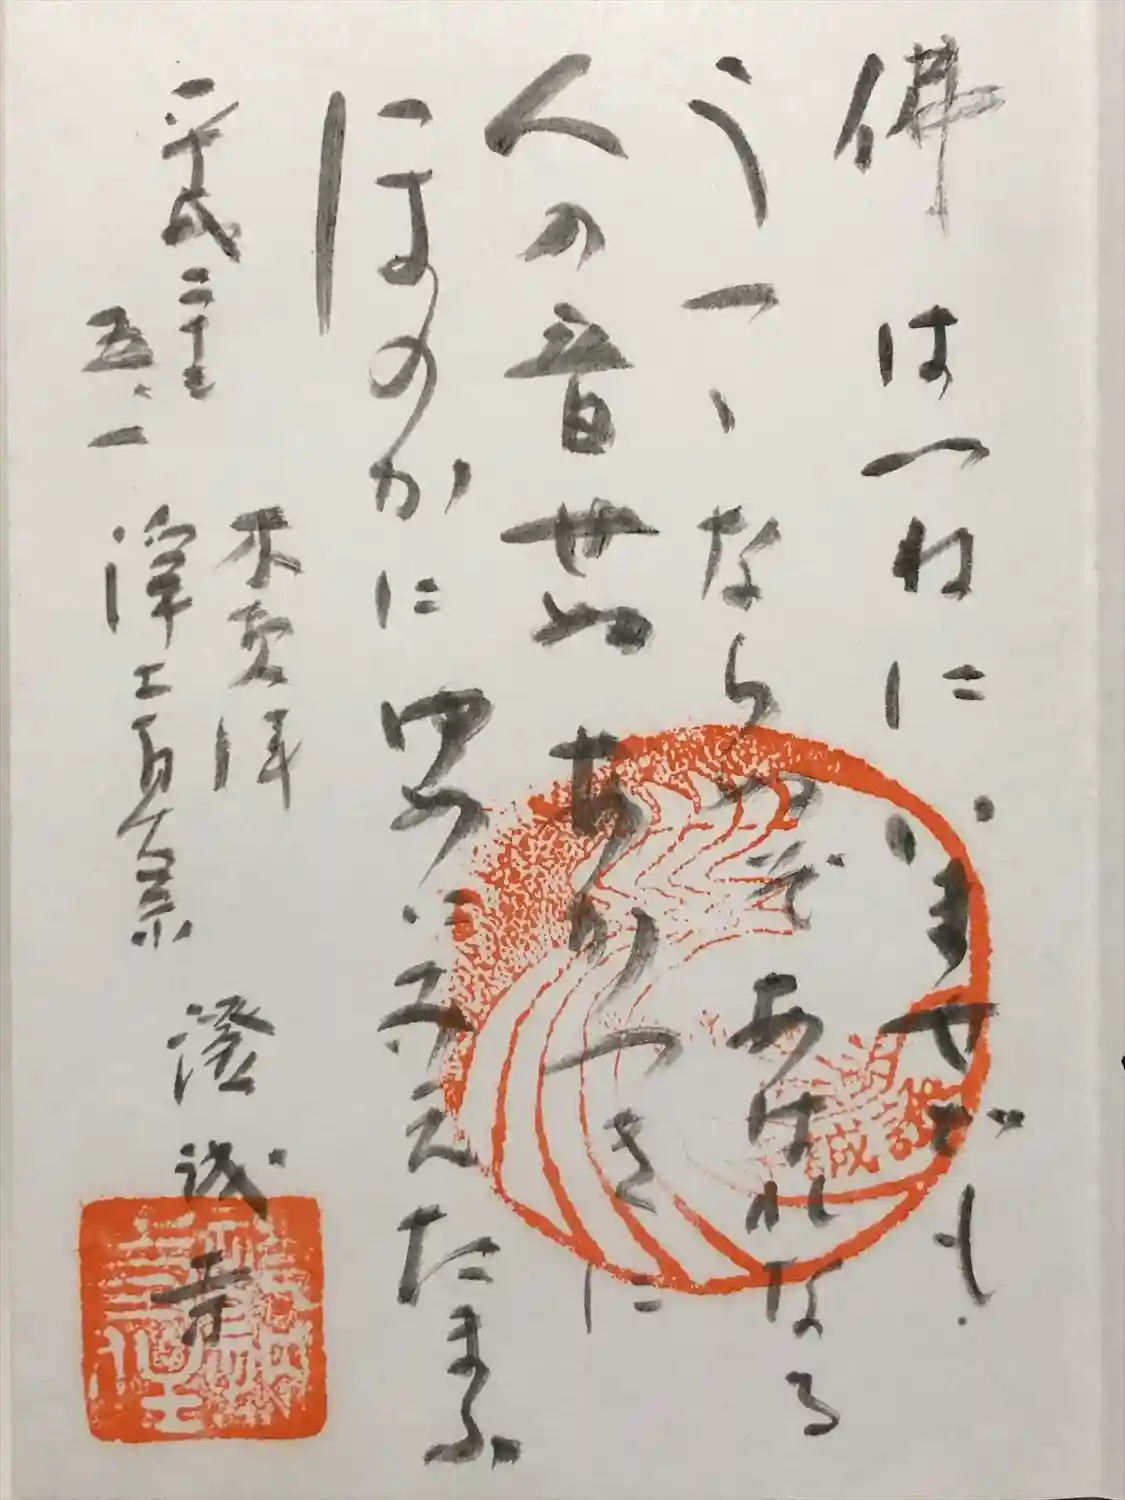 佛はつねにいませども
うつゝならぬぞあはれなる
人の音せぬあかつきに
ほのかに夢にみえたまふ
平成二十七
五、一
浄土真宗
澄誠寺